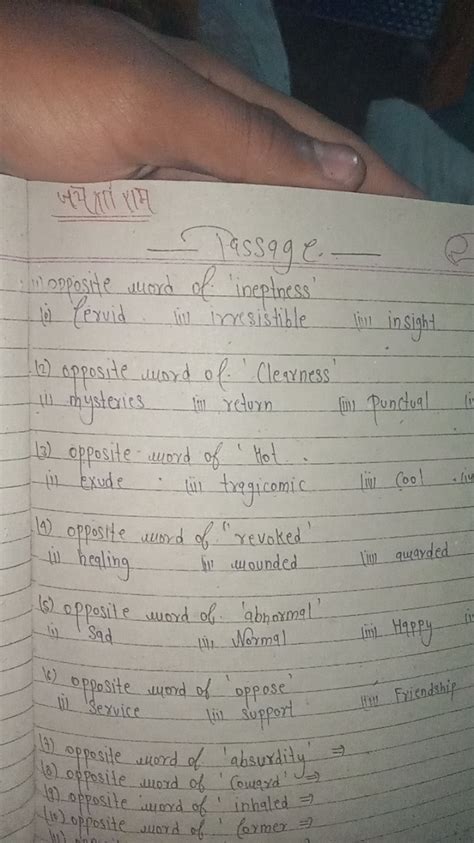 राम
Passage.
(1) opposite word of 'ineptness'
(i) fervid (ii) irresistible (iii) insight
(2) opposite word of 'Clearness'
(i) mysteries (ii) return (iii) Punctual
(3) opposite word of 'Hot.
(i) exude (ii) tragicomic (iii) Cool
(4) opposite word of "revoked'
(i) healing (ii) wounded (iii) awarded
(5) opposite word of 'abnormal'
(i) Sad (ii) Normal (iii) Happy
(6) opposite word of 'oppose'
(i) Service (ii) support (iii) Friendship
(7) opposite word of 'absurdity' ⇒
(8) opposite word of 'Coward' ⇒
(9) opposite word of 'inhaled ⇒
(10) opposite word of 'former ⇒